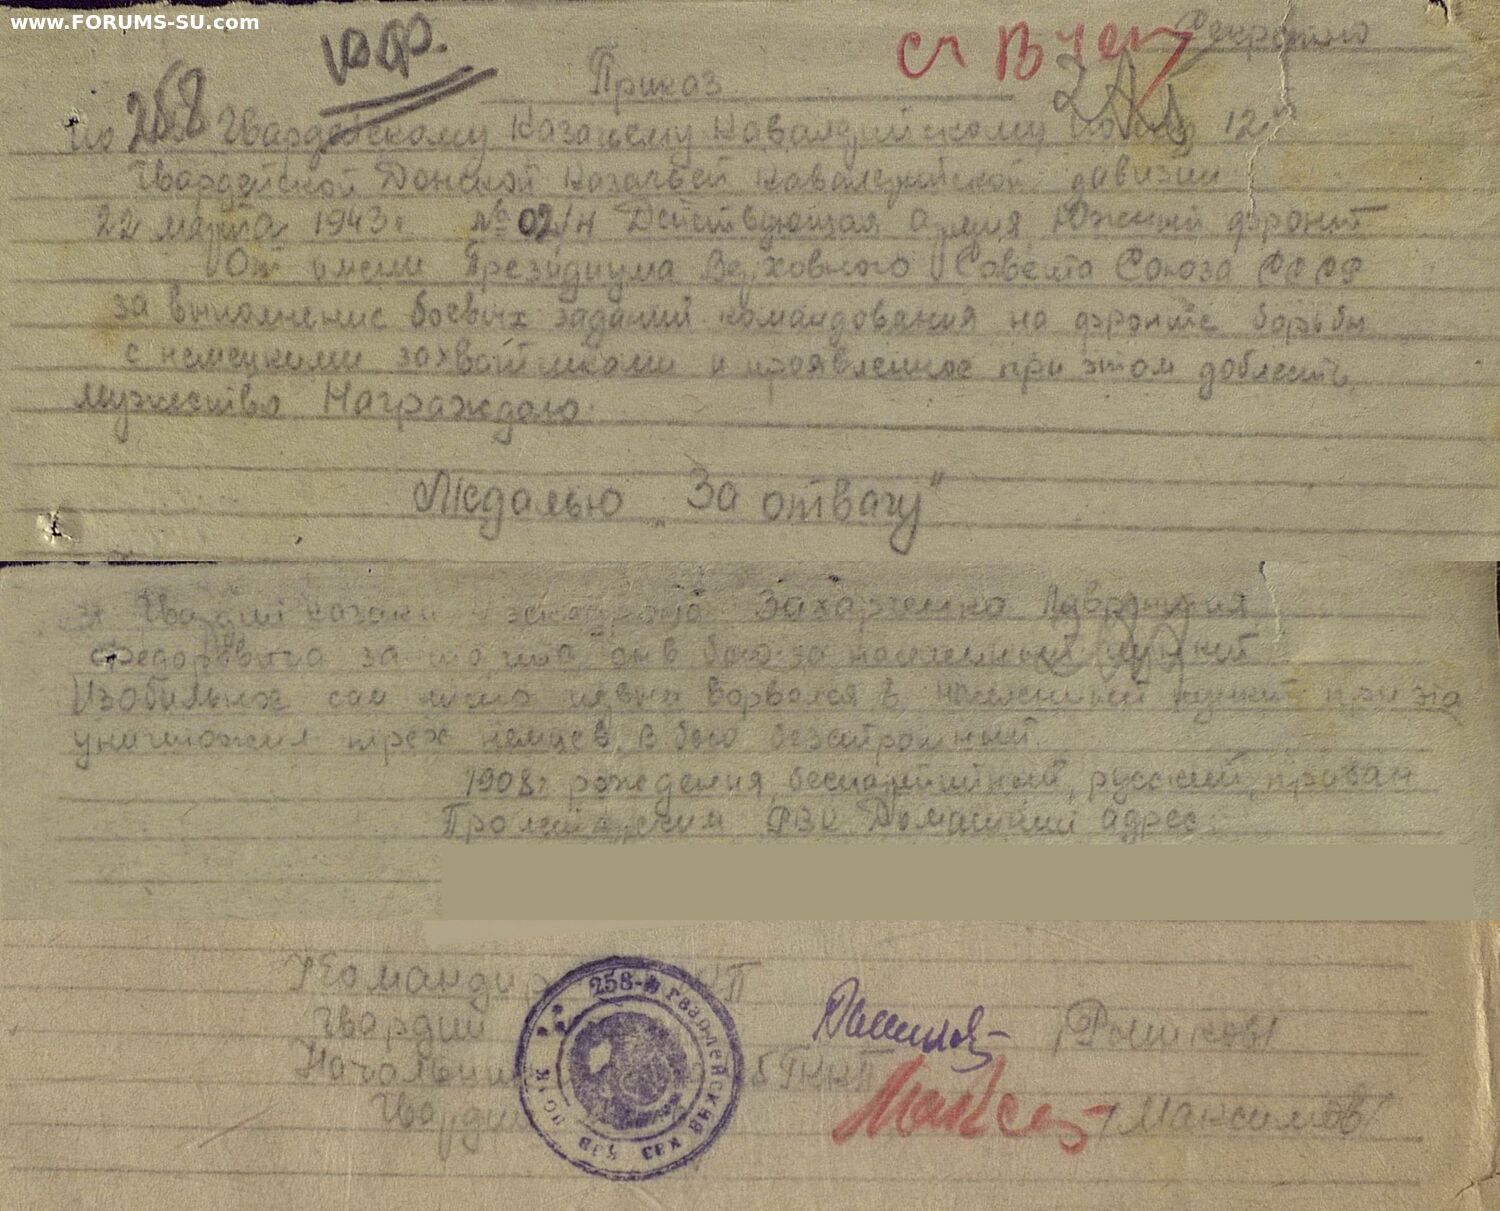 www.FORUMS-SU.com
Секретно
Приказ
по 258 Гвардейскому Казачьему Кавалерийскому полку 12й
Гвардейской Донской Казачьей Кавалерийской дивизии
22 марта 1943г. № 02/н Действующая армия Южный фронт
От имени Президиума Верховного Совета Союза ССР
за выполнение боевых заданий командования на фронте борьбы
с немецкими захватчиками и проявленное при этом доблесть
мужество Награждаю:
Медалью „За отвагу"
Гвардии казака эскадрона Захарченко Лаврентия
Федоровича за то что он в бою за населенный пункт
Изобильное ворвался в населенный пункт при эт
уничтожил трех немцев. В бою бесстрашный.
1908г рождения, беспартийный, русский, призван
Пролетарским РВК Домашний адрес:
Командир КП
Гвардии /Рышков/
Начальник
Гвардии /Максимов/
258-й гвардейский каз. кав. полк